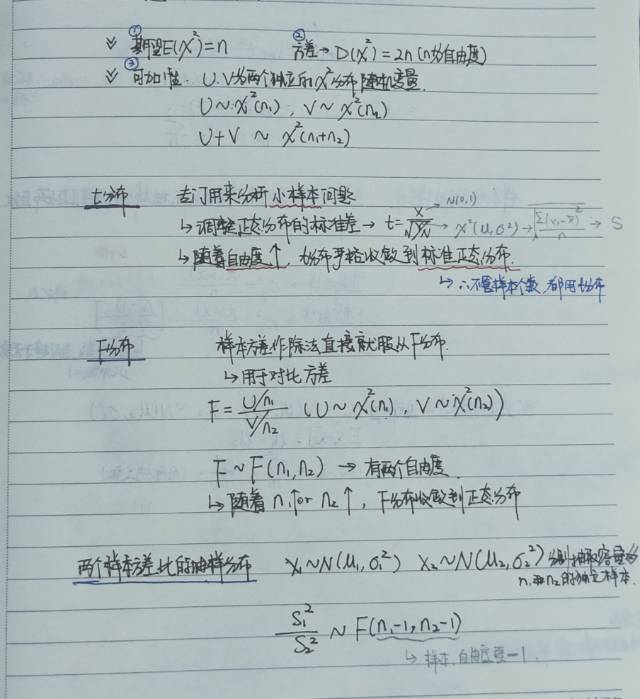 ① 期望E(χ²)=n ② 方差→D(χ²)=2n(n为自由度)
③ 可加性: U.V为两个独立的χ²分布随机变量.
U~χ²(n₁), V~χ²(n₂)
U+V ~ χ²(n₁+n₂)
t分布 专门用来分析小样本问题
↳调整正态分布的标准差→ t=X/√(Y/n) → N(0,1) → χ²(μ,σ²)→√(Σ(xᵢ-x̄)²/n) → S
↳随着自由度↑, t分布严格收敛到标准正态分布.
↳∴不管样本个数,都用t分布
F分布 样本方差作除法直接就服从F分布.
↳用于对比方差
F=(U/n₁)/(V/n₂) (U~χ²(n₁), V~χ²(n₂))
F~F(n₁,n₂) → 有两个自由度
↳随着n₁↑or n₂↑, F分布收敛到正态分布
两个样本方差比的抽样分布 X₁~N(μ₁,σ₁²) X₂~N(μ₂,σ₂²)分别抽取容量为
n₁和n₂的独立样本.
S₁²/S₂² ~ F(n₁-1,n₂-1)
↳样本,自由度要-1.